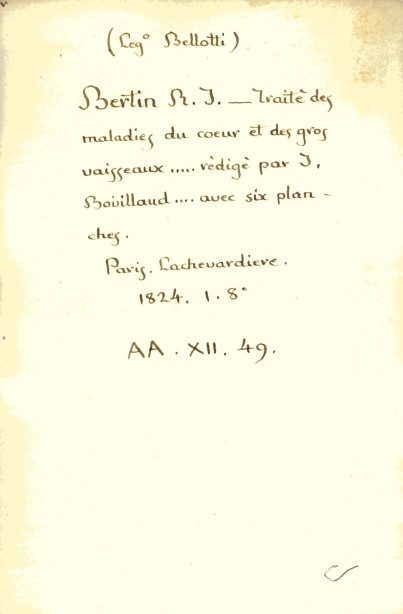 (Leg° Bellotti)
Bertin R. J. — Traitè des
maladies du coeur et des gros
vaisseaux ..... rèdigè par J.
Bouillaud .... avec six plan-
ches.
Paris. Lachevardiere.
1824. 1. 8°
AA. XII. 49.